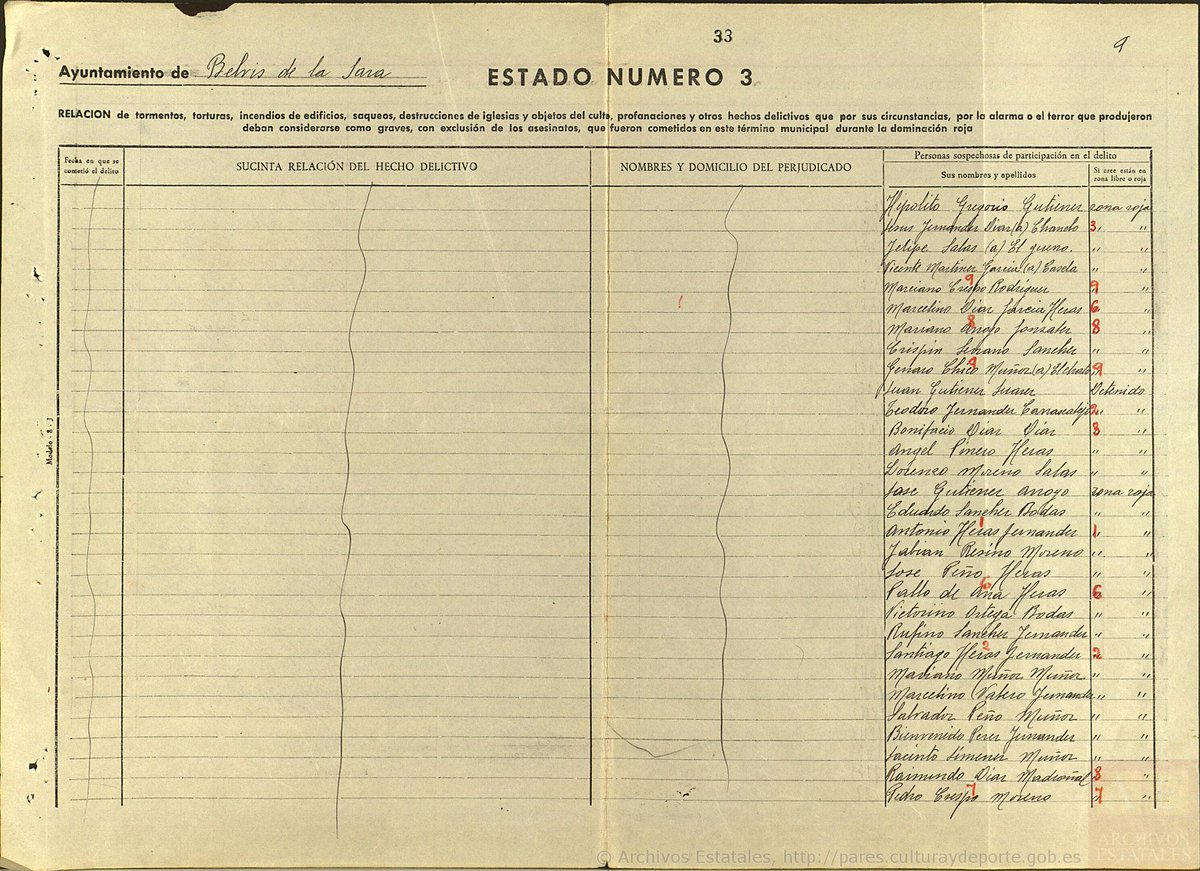 33
9
Ayuntamiento de Belvis de la Jara
ESTADO NUMERO 3
RELACION de tormentos, torturas, incendios de edificios, saqueos, destrucciones de iglesias y objetos del culto, profanaciones y otros hechos delictivos que por sus circunstancias, por la alarma o el terror que produjeron
deban considerarse como graves, con exclusión de los asesinatos, que fueron cometidos en este término municipal durante la dominación roja
Fecha en que se cometió el delito
SUCINTA RELACIÓN DEL HECHO DELICTIVO
NOMBRES Y DOMICILIO DEL PERJUDICADO
Personas sospechosas de participación en el delito
Sus nombres y apellidos
Si cree están en zona libre o roja
Hipolito Gregorio Gutierrez zona roja
Jesus Fernandez Diaz (a) Chanclo 3 " "
Felipe Salas (a) El " "
Vicente Martinez Garcia (a) Casela " "
Marciano Crespo Rodriguez 9 9 "
Marcelino Diaz Garcia Heras 6 "
Mariano Arroyo Gonzalez 8 8 "
Crispin Serrano Sanchez " "
Genaro Chico Muñoz (a) 9 9 "
Juan Gutierrez Suarez Detenido
Teodoro Fernandez Carrascalejo 2 " "
Bonifacio Diaz Diaz 8 "
Angel Pinero Heras " "
Lorenzo Moreno Salas " "
Jose Gutierrez Arroyo zona roja
Eduardo Sanchez Bodas " "
Antonio Heras Fernandez 1 1 "
Fabian Resino Moreno " "
Jose Peño Heras " "
Pablo de Ana Heras 6 6 "
Victorino Ortega Bodas " "
Rufino Sanchez Fernandez " "
Santiago Heras Fernandez 2 2 "
Mariano Muñoz Muñoz " "
Marcelino Valero Fernandez " "
Salvador Peño Muñoz " "
Bienvenido Perez Fernandez " "
Jacinto Jimenez Muñoz " "
Raimundo Diaz Madroñal 8 "
Pedro Crespo Moreno 7 7 "
Modelo - 8 - J
ARCHIVOS
ESTATALES
© Archivos Estatales, http://pares.culturaydeporte.gob.es